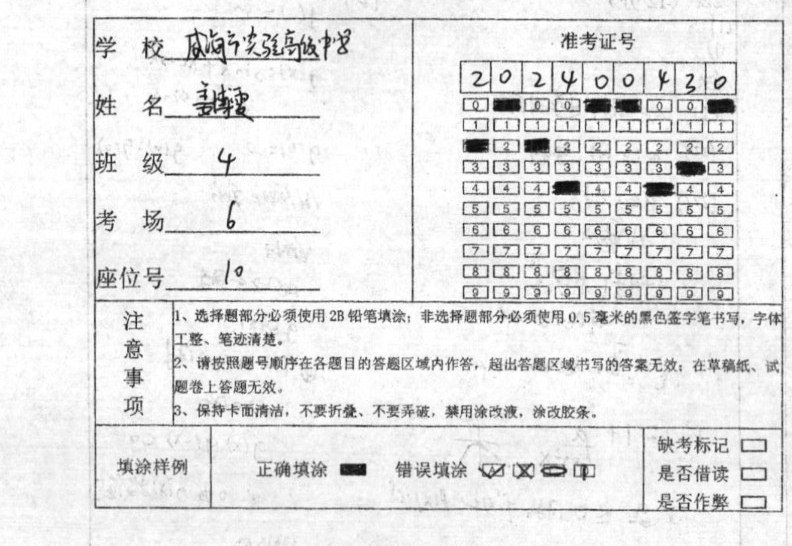 学 校 威海市实验高级中学
准考证号
姓 名
班 级 4
考 场 6
座位号 10
2 0 2 4 0 0 4 3 0
0 0 0 0 0
1 1 1 1 1 1 1 1 1
2 2 2 2 2 2 2
3 3 3 3 3 3 3 3
4 4 4 4 4 4 4
5 5 5 5 5 5 5 5 5
6 6 6 6 6 6 6 6 6
7 7 7 7 7 7 7 7 7
8 8 8 8 8 8 8 8 8
9 9 9 9 9 9 9 9 9
注意事项
1、选择题部分必须使用 2B 铅笔填涂；非选择题部分必须使用 0.5 毫米的黑色签字笔书写，字体
工整、笔迹清楚。
2、请按照题号顺序在各题目的答题区域内作答，超出答题区域书写的答案无效；在草稿纸、试
题卷上答题无效。
3、保持卡面清洁，不要折叠、不要弄破，禁用涂改液，涂改胶条。
填涂样例
正确填涂 错误填涂
缺考标记
是否借读
是否作弊